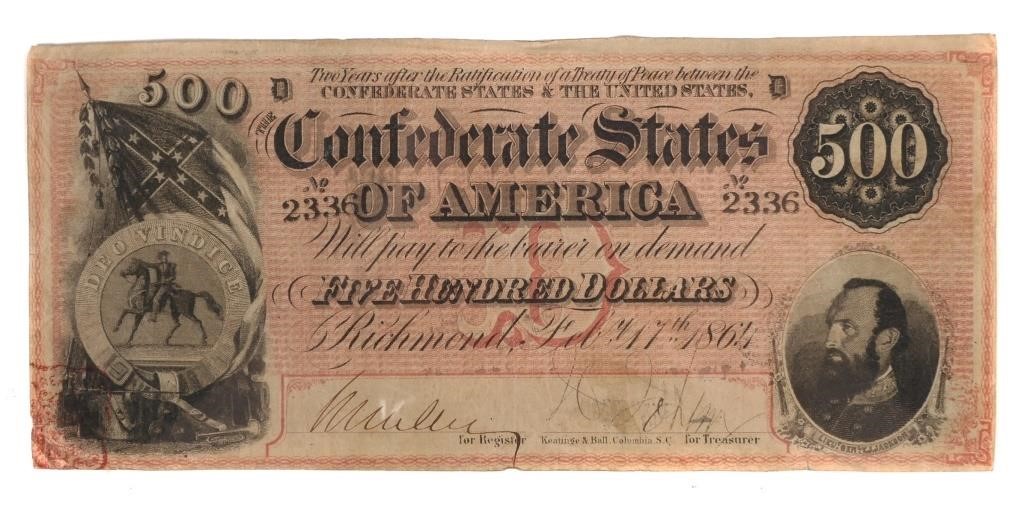 500
D
Two Years after the Ratification of a Treaty of Peace between the
CONFEDERATE STATES & THE UNITED STATES,
D
THE
Confederate States
500
No
2336
OF AMERICA
No
2336
DEO VINDICE
Will pay to the bearer on demand
FIVE HUNDRED DOLLARS
Richmond, Feby 17th 1864
for Register
Keatinge & Ball, Columbia S.C.
for Treasurer
LIEUT. GEN. T.J. JACKSON